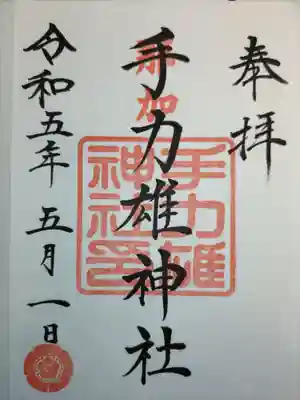 奉拝
那加
手力雄神社
手力雄神社印
令和五年五月一日